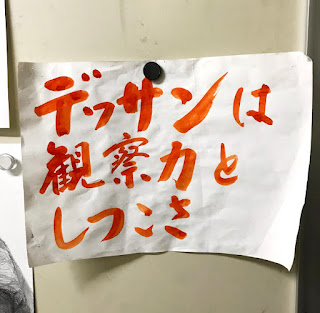 デッサンは
観察力と
しつこさ